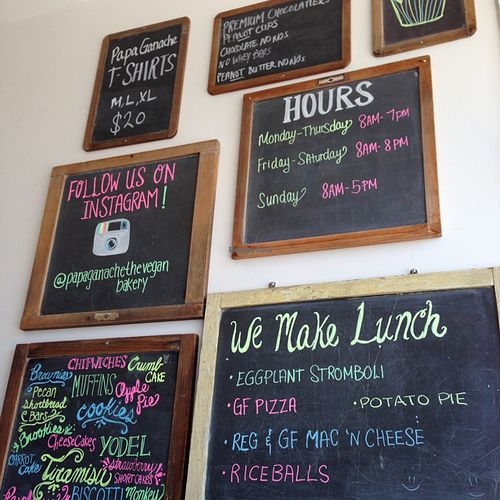 Papa Ganache
T-SHIRTS
M, L, XL
$20
PREMIUM CHOCOLATIERS
PEANUT CUPS
CHOCOLATE NO NOS
NO WHEY BARS
PEANUT BUTTER NO NOS
HOURS
Monday-Thursday 8AM-7PM
Friday-Saturday 8AM-8PM
Sunday 8AM-5PM
FOLLOW US ON
INSTAGRAM!
@papaganachethevegan
bakery
We Make Lunch
• EGGPLANT STROMBOLI
• GF PIZZA • POTATO PIE
• REG & GF MAC 'N CHEESE
• RICEBALLS
CHIPWICHES
Crumb
CAKE
Brownies
MUFFINS
Apple
Pie
Pecan
Shortbread
Bars
cookies
Brookies
CheeseCakes
YODEL
CARROT
Cake
Tiramisu
Strawberry
SHORTCAKES
BISCOTTI
Monkey